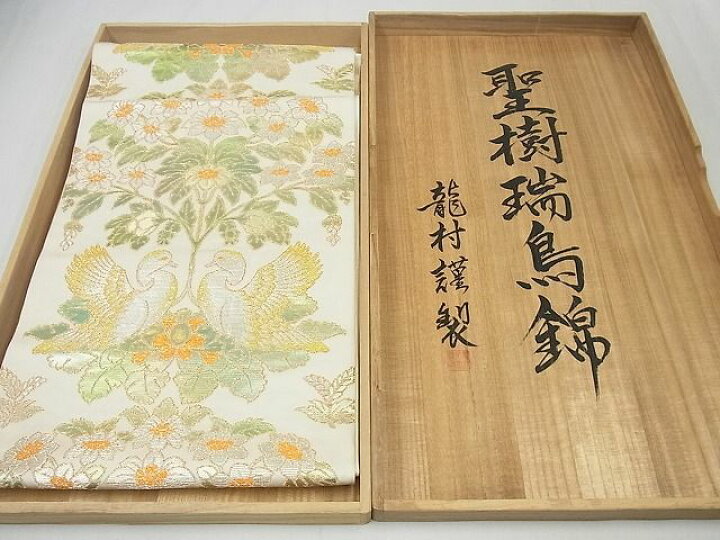 聖樹瑞鳥錦
龍村謹製